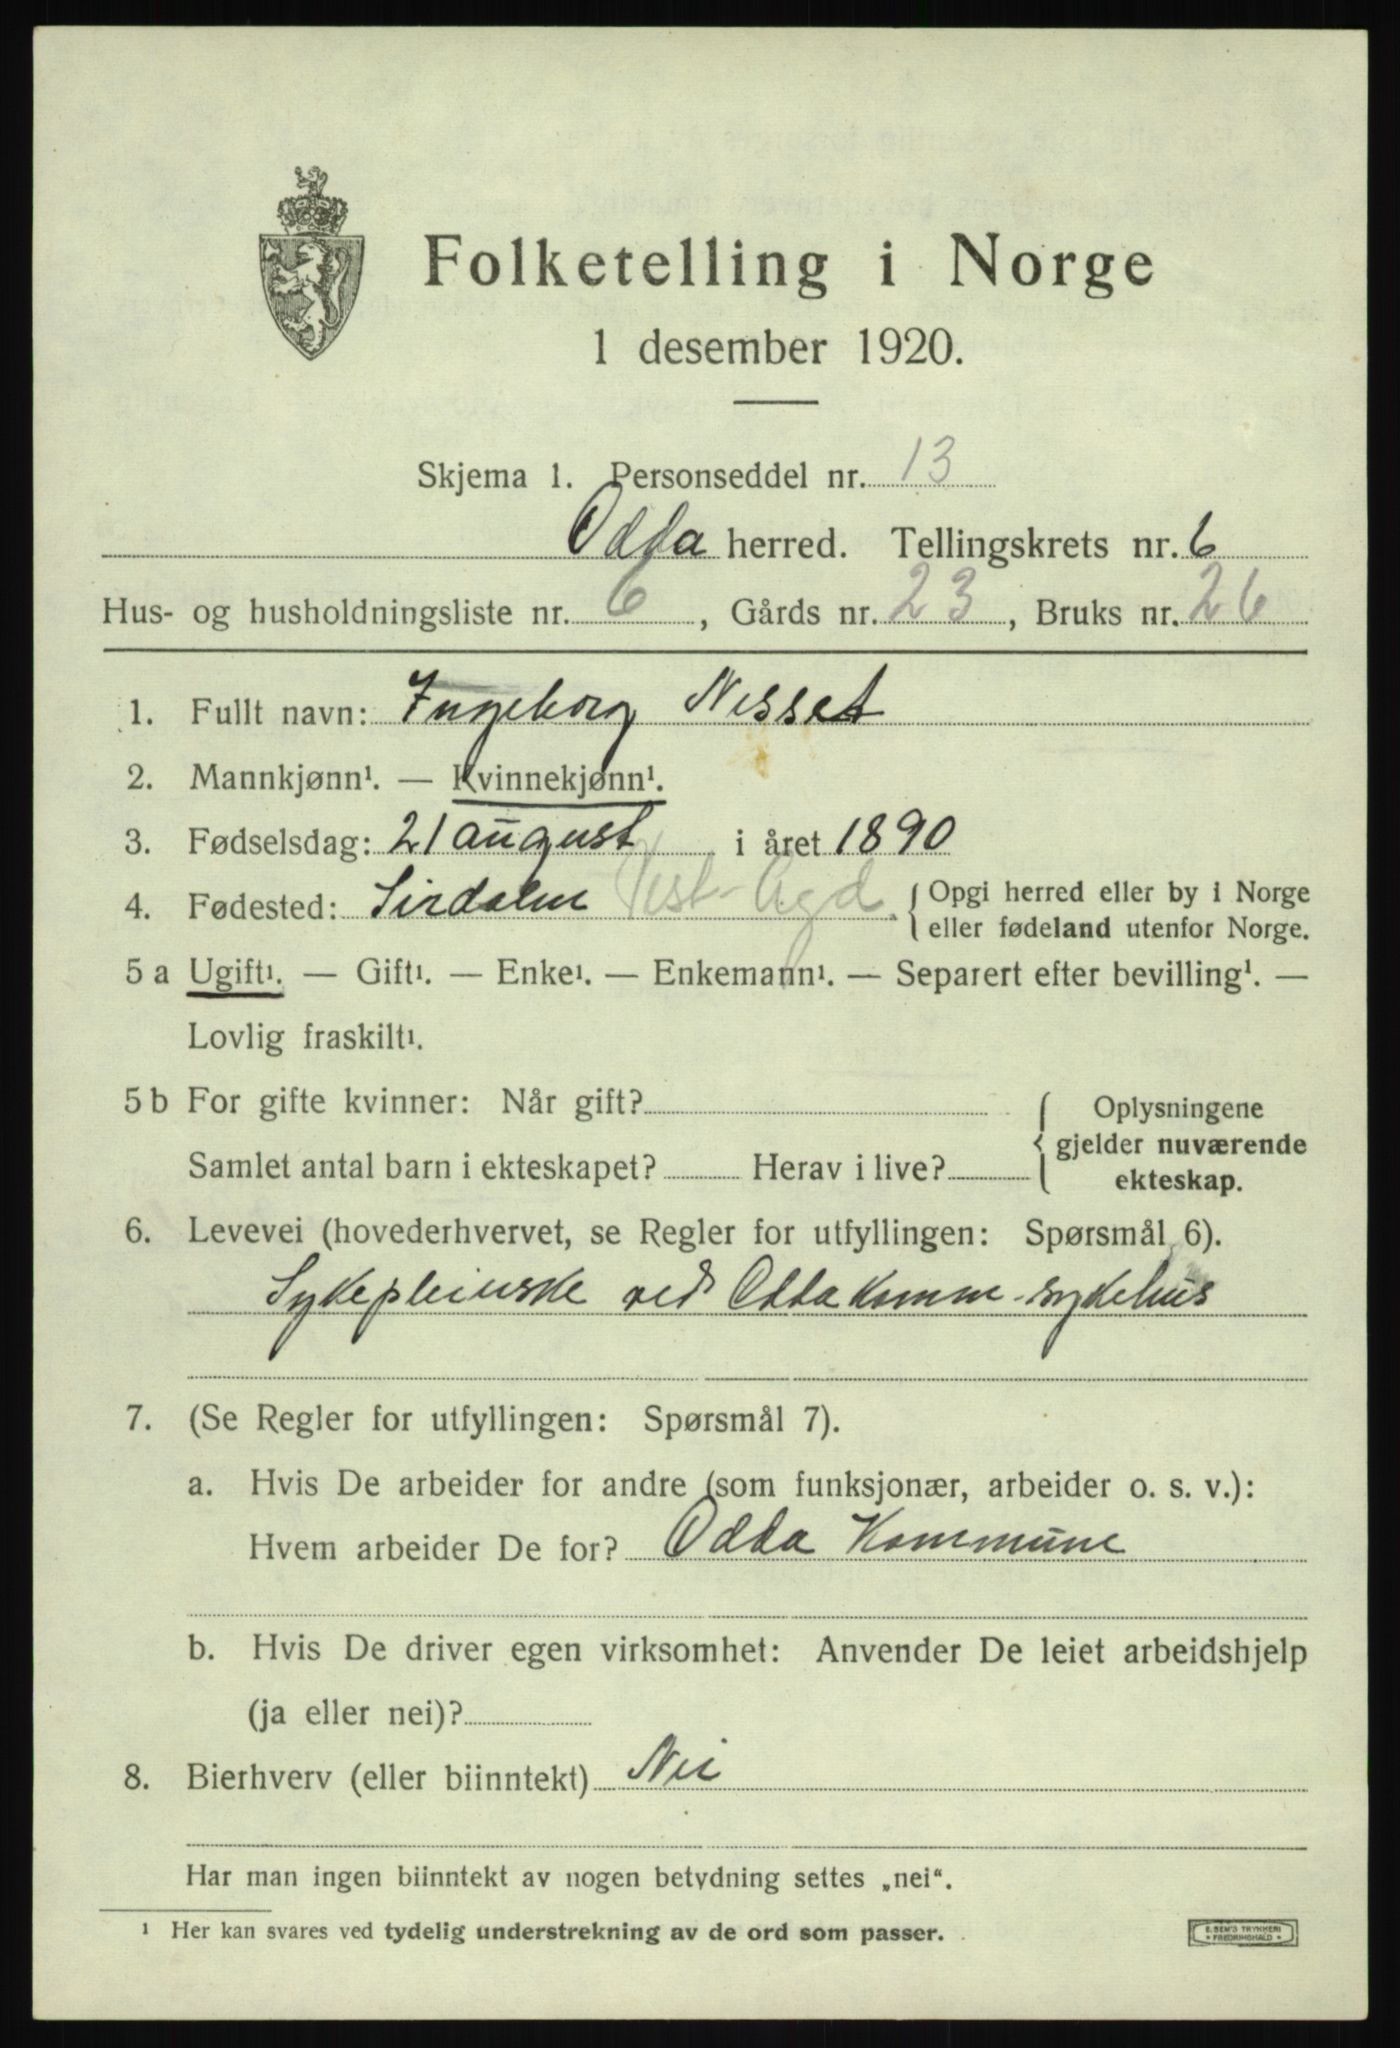 Folketelling i Norge
1 desember 1920.
Skjema 1. Personseddel nr. 13
Odda herred. Tellingskrets nr. 6
Hus- og husholdningsliste nr. 6, Gårds nr. 23, Bruks nr. 26
1. Fullt navn: Ingeborg Nesset
2. Mannkjønn¹. — Kvinnekjønn¹.
3. Fødselsdag: 21 august i året 1890
4. Fødested: Sirdalen Vest-Agd. { Opgi herred eller by i Norge
eller fødeland utenfor Norge.
5 a Ugift¹. — Gift¹. — Enke¹. — Enkemann¹. — Separert efter bevilling¹. —
Lovlig fraskilt¹.
5 b For gifte kvinner: Når gift? { Oplysningene
gjelder nuværende
Samlet antal barn i ekteskapet? Herav i live?
ekteskap.
6. Levevei (hovederhvervet, se Regler for utfyllingen: Spørsmål 6).
Sykepleierske ved Odda komm. sykehus
7. (Se Regler for utfyllingen: Spørsmål 7).
a. Hvis De arbeider for andre (som funksjonær, arbeider o. s. v.):
Hvem arbeider De for? Odda Kommune
b. Hvis De driver egen virksomhet: Anvender De leiet arbeidshjelp
(ja eller nei)?
8. Bierhverv (eller biinntekt) Nei
Har man ingen biinntekt av nogen betydning settes „nei“.
¹ Her kan svares ved tydelig understrekning av de ord som passer.
E. SEM'S TRYKKERI
* FREDRIKSHALD *